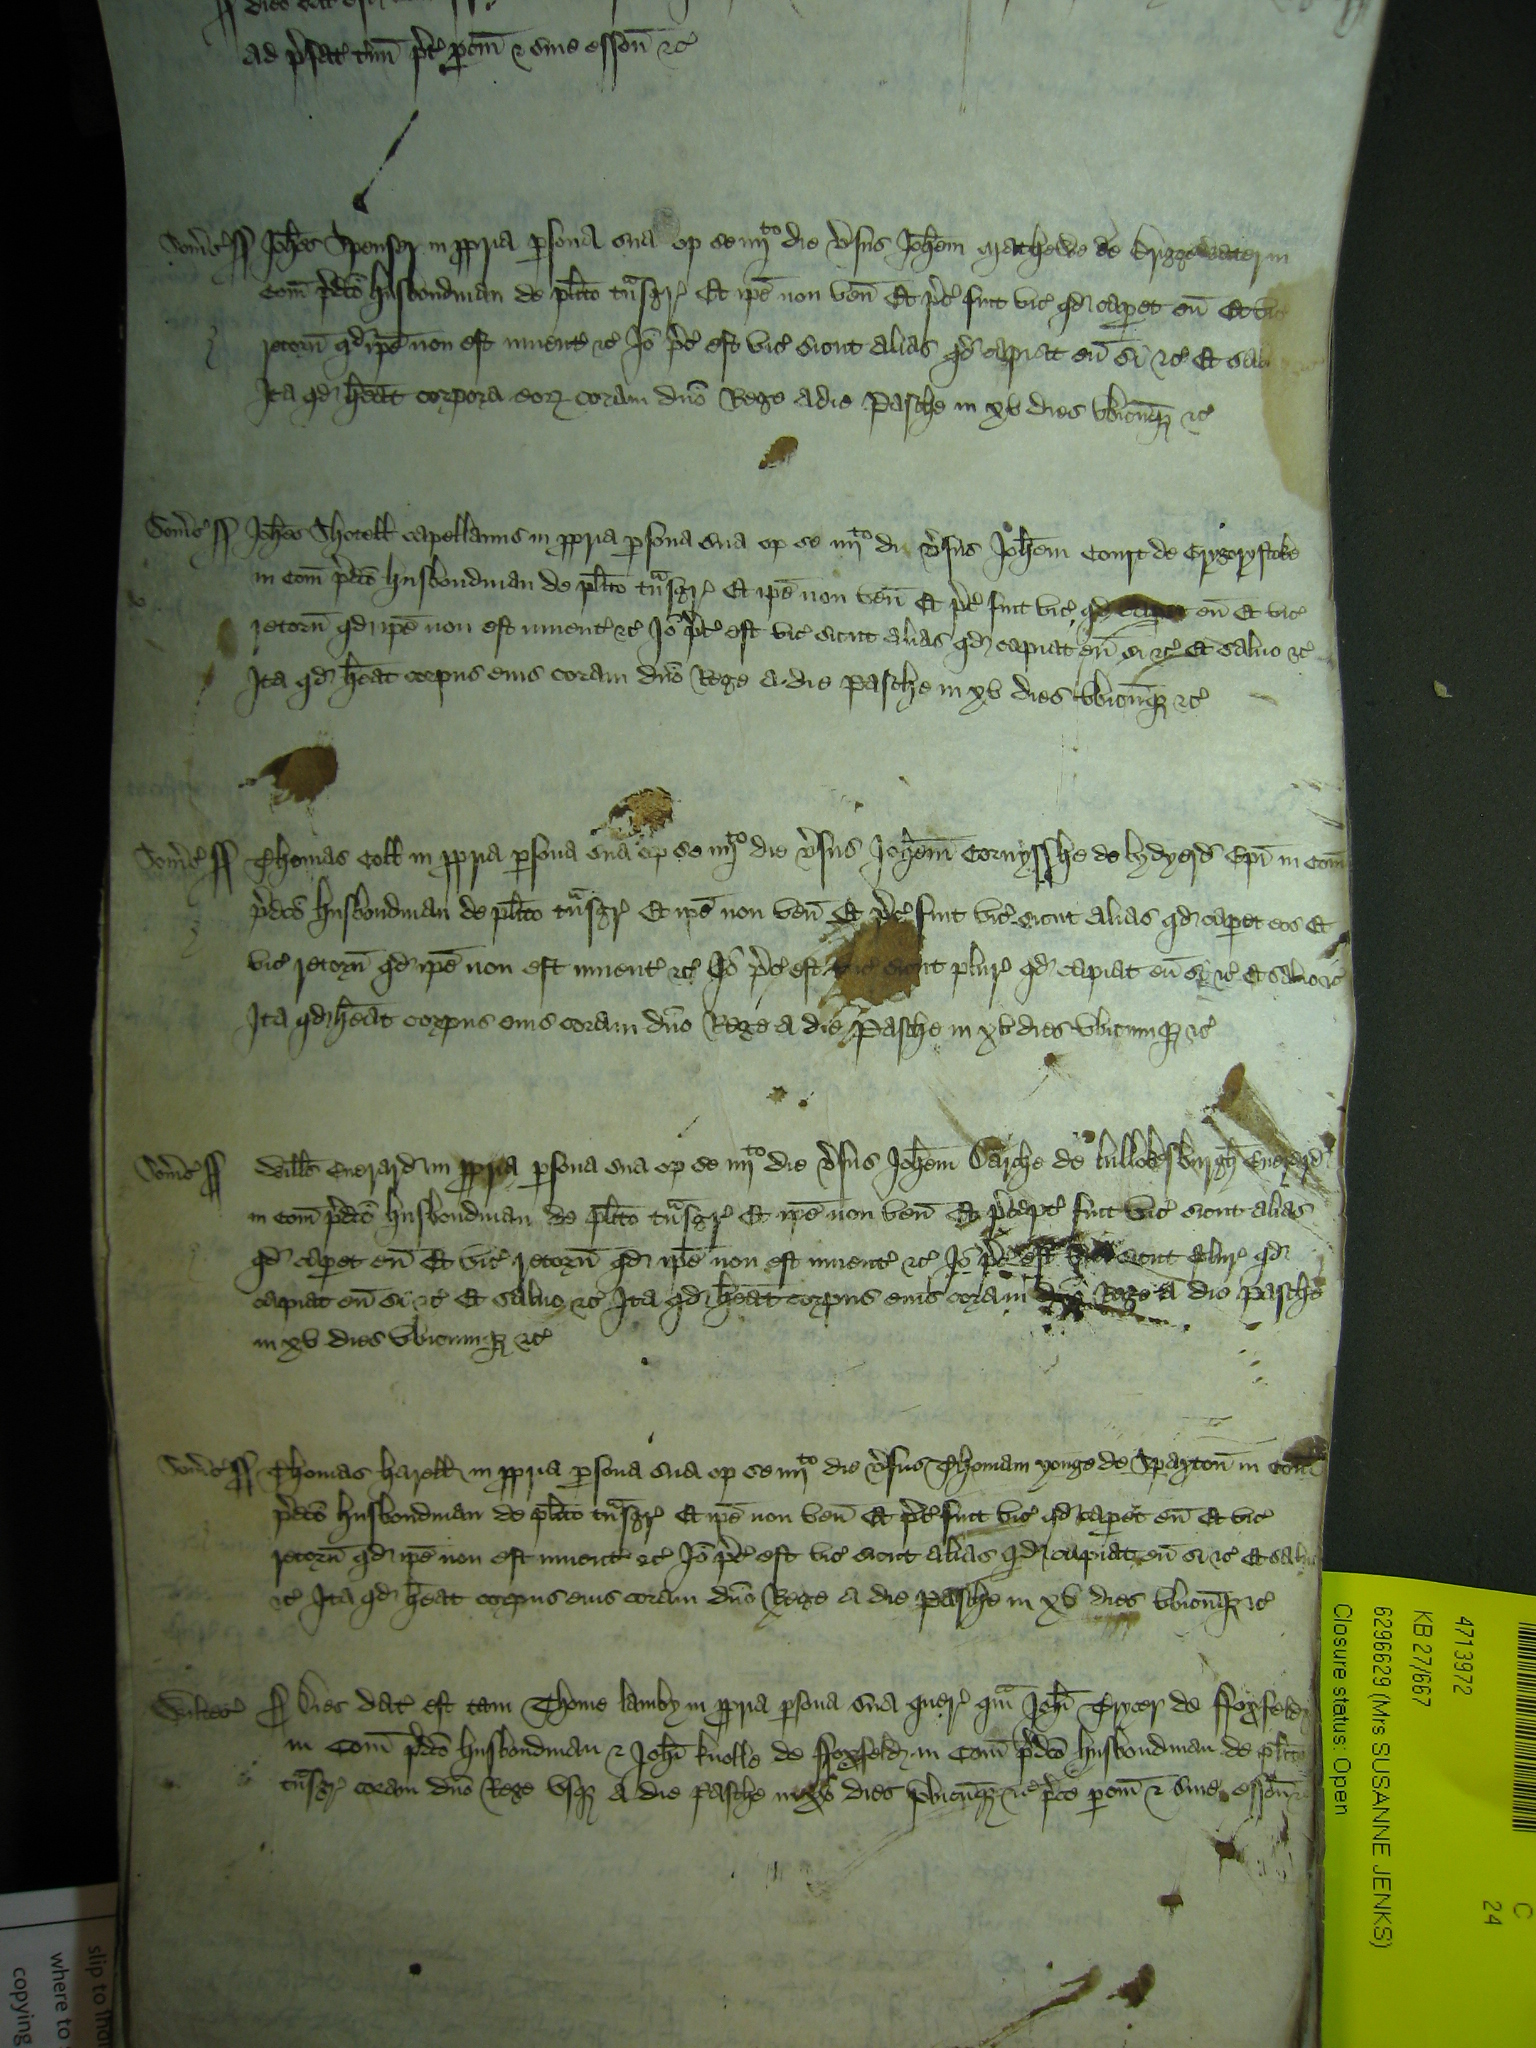 ad p̄fat t̄m p̄c p com̄ & sine esson̄ &c
Som̄s ss Joh̄es Spenser in p̱pria p̱sona sua op se iiij to die v̄sus Joh̄em Mathewe de Briggewater in
Com̄ p̄dc̄o husbondman de pl̄ito tn̄sgr Et ip̄e non ven̄ Et p̄c fuit vic qd cap̱et eū Et vic
retorn̄ qd ip̄e non est inuent &c Jō p̄c est vic sicut alias qd capiat eū si &c Et sal
Ita qd h̄eat corpora eoꝝ coram dn̄o Rege a die Pasche in xv dies vbicūqꝫ &c
Som̄s ss Joh̄es Shotell capellanus in p̱pria p̱sona sua op se iiij to di v̄sus Joh̄em Court de Grygorystoke
in Com̄ p̄dc̄o husbondman de pl̄ito tn̄sgr Et ip̄e non ven̄ Et p̄c fuit vic qd cap̱et eū Et vic
retorn̄ qd ip̄e non est inuent &c Jō p̄c est vic sicut alias qd capiat eū si &c Et saluo &c
Ita qd h̄eat corpus eius coram dn̄o Rege a die Pasche in xv dies vbicūqꝫ &c
Som̄s ss Thomas Coll in p̱pria p̱sona sua op se iiij to die v̄sus Joh̄em Cornysshe de lydyerd Ep̄i in Com̄
p̄dc̄o husbondman de pl̄ito tn̄sgr Et ip̄e non ven̄ Et p̄c fuit vic sicut alias qd cap̱et eos Et
vic retorn̄ qd ip̄e non est inuent &c Jō p̄c est vic sicut plur qd capiat eū si &c Et saluo &c
Ita qd h̄eat corpus eius coram dn̄o Rege a die Pasche in xv dies vbicumqꝫ &c
Som̄s ss Will̄s Euerard in p̱pria p̱sona sua op se iiij to die v̄sus Joh̄em Sarche de lullokesburgh Euerard
in Com̄ p̄dc̄o husbondman de pl̄ito tn̄sgr Et ip̄e non ven̄ Et p̄cept fuit vic sicut alias
qd cap̱et eū Et vic retorn̄ qd ip̄e non est inuent &c Jō p̄c est vic sicut plur qd
capiat eū si &c Et saluo &c Ita qd h̄eat corpus eius coram dn̄o Rege a die Pasche
in xv dies vbicumqꝫ &c
Som̄s ss Thomas harell in p̱pria p̱sona sua op se iiij to die v̄sus Thomam yonge de Spaxton̄ in Com̄
p̄dc̄o husbondman de pl̄ito tn̄sgr Et ip̄e non ven̄ Et p̄c fuit vic qd cap̱et eū Et vic
retorn̄ qd ip̄e non est inuent &c Jō p̄c est vic sicut alias qd capiat eū si &c Et saluo
&c Ita qd h̄eat corpus eius coram dn̄o Rege a die Pasche in xv dies vbicūqꝫ &c
Wiltes ss Dies dat est tam Thome lamby in p̱pria p̱sona sua quer qm̄ Joh̄i Trycer de ffoxfeld
in Com̄ p̄dc̄o husbondman & Joh̄i knolle de ffoxfeld in Com̄ p̄dc̄o husbondman de pl̄ito
tn̄sgr coram dn̄o Rege vsqꝫ a die Pasche in xv dies vbicūqꝫ &c p̄ce p com̄ & sine esson̄ &c
4713972
KB 27/667
6296629 (Mrs SUSANNE JENKS)
Closure status: Open
C
24
slip to
where to
copying